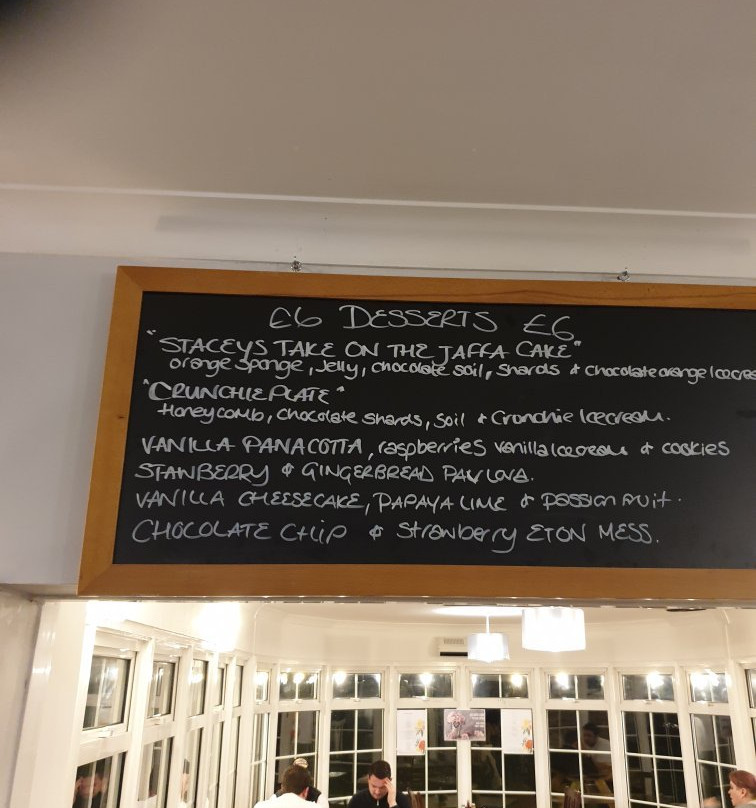 £6 DESSERTS £6
"STACEYS TAKE ON THE JAFFA CAKE"
orange sponge, Jelly, chocolate soil, shards & chocolate orange
"CRUNCHIE PLATE"
Honeycomb, chocolate shards, soil & Cronchie Icecream.
VANILLA PANACOTTA, raspberries vanilla Icecream & cookies
STAWBERRY & GINGERBREAD PAVLOVA.
VANILLA CHEESECAKE, PAPAYA LIME & passion fruit.
CHOCOLATE CHIP & Strawberry ETON MESS.